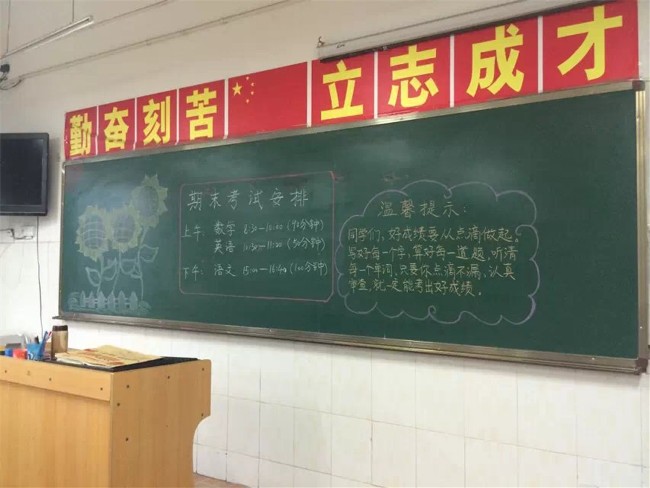 勤奋刻苦 立志成才
期末考试安排
上午: 数学 8:30—10:00 (90分钟)
英语 10:30—11:20 (50分钟)
下午: 语文 15:00—16:40 (100分钟)
温馨提示:
同学们,好成绩要从点滴做起。
写好每一个字、算好每一道题、听清
每一个单词,只要你点滴不漏、认真
审查,就一定能考出好成绩。